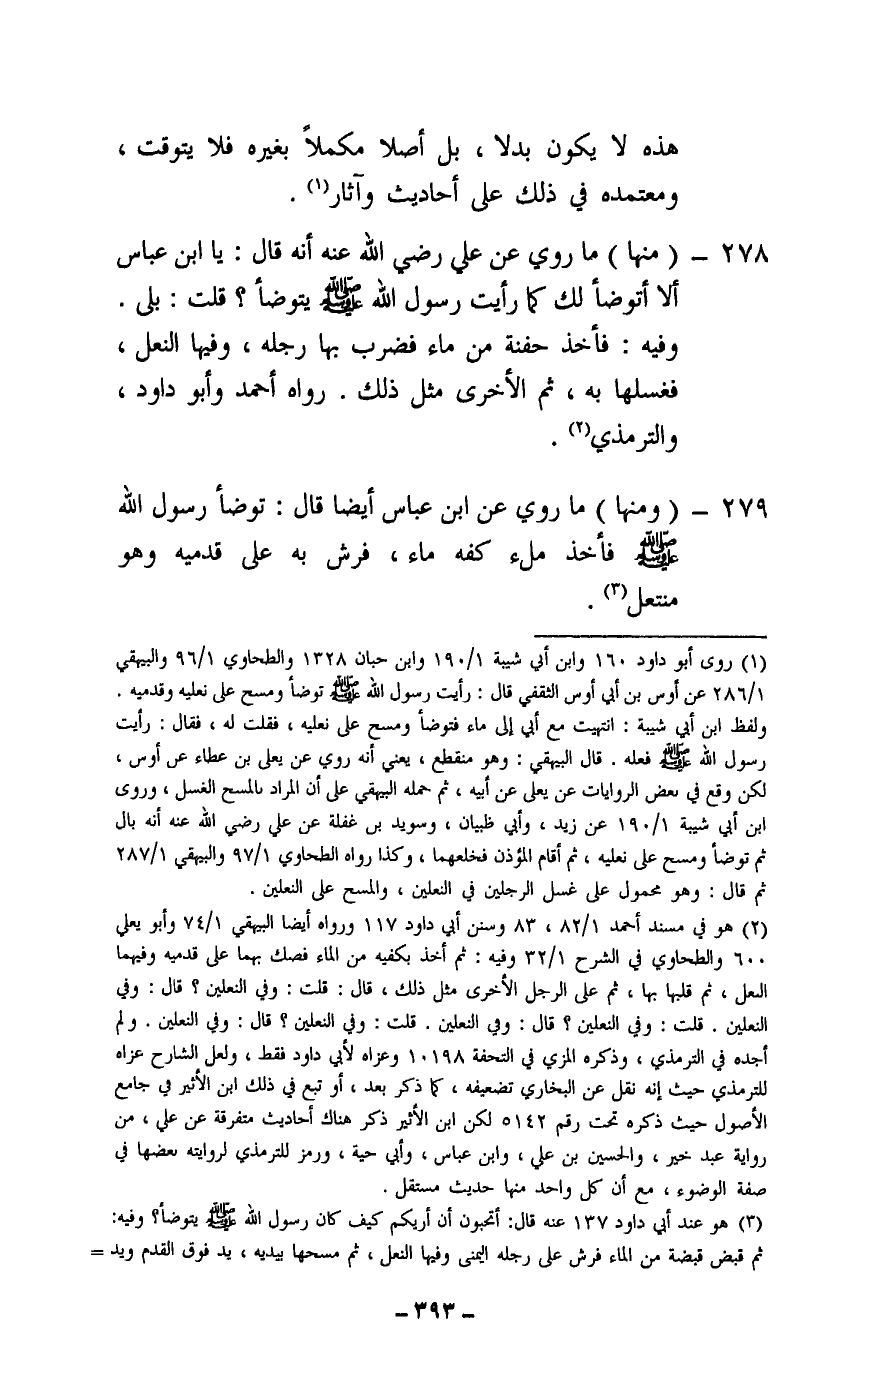 هذه لا يكون بدلا ، بل أصلا مكملاً بغيره فلا يتوقت ،
ومعتمده في ذلك على أحاديث وآثار(١) .
٢٧٨ ــ ( منها ) ما روي عن علي رضي الله عنه أنه قال : يا ابن عباس
ألا أتوضأ لك كما رأيت رسول الله ﷺ يتوضأ ؟ قلت : بلى .
وفيه : فأخذ حفنة من ماء فضرب بها رجله ، وفيها النعل ،
فغسلها به ، ثم الأخرى مثل ذلك . رواه أحمد وأبو داود ،
والترمذي(٢) .
٢٧٩ ــ ( ومنها ) ما روي عن ابن عباس أيضا قال : توضأ رسول الله
ﷺ فأخذ ملء كفه ماء ، فرش به على قدميه وهو
منتعل(٣) .
(١) روى أبو داود ١٦٠ وابن أبي شيبة ١٩٠/١ وابن حبان ١٣٢٨ والطحاوي ٩٦/١ والبيهقي
٢٨٦/١ عن أوس بن أبي أوس الثقفي قال : رأيت رسول الله ﷺ توضأ ومسح على نعليه وقدميه .
ولفظ ابن أبي شيبة : انتهيت مع أبي إلى ماء فتوضأ ومسح على نعليه ، فقلت له ، فقال : رأيت
رسول الله ﷺ فعله . قال البيهقي : وهو منقطع ، يعني أنه روي عن يعلى بن عطاء عن أوس ،
لكن وقع في بعض الروايات عن يعلى عن أبيه ، ثم حمله البيهقي على أن المراد بالمسح الغسل ، وروى
ابن أبي شيبة ١٩٠/١ عن زيد ، وأبي ظبيان ، وسويد بن غفلة عن علي رضي الله عنه أنه بال
ثم توضأ ومسح على نعليه ، ثم أقام المؤذن فخلعهما ، وكذا رواه الطحاوي ٩٧/١ والبيهقي ٢٨٧/١
ثم قال : وهو محمول على غسل الرجلين في النعلين ، والمسح على النعلين .
(٢) هو في مسند أحمد ٨٢/١ ، ٨٣ وسنن أبي داود ١١٧ ورواه أيضا البيهقي ٧٤/١ وأبو يعلي
٦٠٠ والطحاوي في الشرح ٣٢/١ وفيه : ثم أخذ بكفيه من الماء فصك بهما على قدميه وفيهما
النعل ، ثم قلبها بها ، ثم على الرجل الأخرى مثل ذلك ، قال : قلت : وفي النعلين ؟ قال : وفي
النعلين . قلت : وفي النعلين ؟ قال : وفي النعلين . قلت : وفي النعلين ؟ قال : وفي النعلين . ولم
أجده في الترمذي ، وذكره المزي في التحفة ١٠١٩٨ وعزاه لأبي داود فقط ، ولعل الشارح عزاه
للترمذي حيث إنه نقل عن البخاري تضعيفه ، كما ذكر بعد ، أو تبع في ذلك ابن الأثير في جامع
الأصول حيث ذكره تحت رقم ٥١٤٢ لكن ابن الأثير ذكر هناك أحاديث متفرقة عن علي ، من
رواية عبد خير ، والحسين بن علي ، وابن عباس ، وأبي حية ، ورمز للترمذي لروايته بعضها في
صفة الوضوء ، مع أن كل واحد منها حديث مستقل .
(٣) هو عند أبي داود ١٣٧ عنه قال: أتحبون أن أريكم كيف كان رسول الله ﷺ يتوضأ؟ وفيه:
ثم قبض قبضة من الماء فرش على رجله اليمنى وفيها النعل ، ثم مسحها بيديه ، يد فوق القدم ويد =
ــ ٣٩٣ ــ